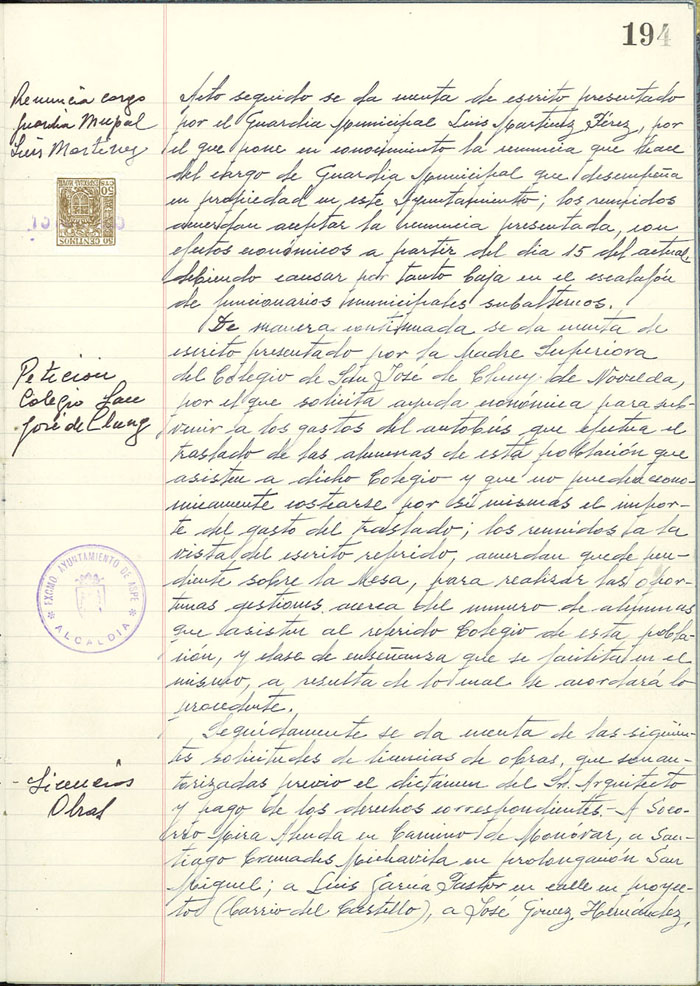 194
Renuncia cargo
Guardia Mupal
Luis Martínez
Acto seguido se da cuenta de escrito presentado
por el Guardia Municipal Luis Martínez Pérez, por
el que pone en conocimiento la renuncia que hace
del cargo de Guardia Municipal que desempeña
en propiedad en este Ayuntamiento; los reunidos
acuerdan aceptar la renuncia presentada, con
efectos económicos a partir del dia 15 del actual,
debiendo causar por tanto baja en el escalafón
de funcionarios municipales subalternos.
50 CENTIMOS
Petición
Colegio San
José de Cluny
De manera continuada se da cuenta de
escrito presentado por la Madre Superiora
del Colegio de San José de Cluny de Novelda,
por el que solicita ayuda económica para sub-
venir a los gastos del autobus que efectua el
traslado de las alumnas de esta población que
asisten a dicho Colegio y que no pueden econo-
micamente costearse por sí mismas el impor-
te del gasto del traslado; los reunidos a la
vista del escrito referido, acuerdan quede pen-
diente sobre la Mesa, para realizar las opor-
tunas gestiones acerca del numero de alumnas
que asisten al referido Colegio de esta pobla-
ción, y clase de enseñanza que se facilita en el
mismo, a resulta de lo cual se acordará lo
procedente.
EXCMO. AYUNTAMIENTO DE ASPE
* ALCALDIA *
- Licencias
Obras
Seguidamente se da cuenta de las siguien-
tes solicitudes de licencias de obras, que son au-
torizadas previo el dictámen del Sr. Arquitecto
y pago de los derechos correspondientes.- A Soco-
rro Mira en Camino de Monóvar, a San-
tiago Cremades Michavila en prolongación San
Miguel; a Luis García Pastor en calle en proyec-
to (barrio del Castillo), a José Gómez Hernández,